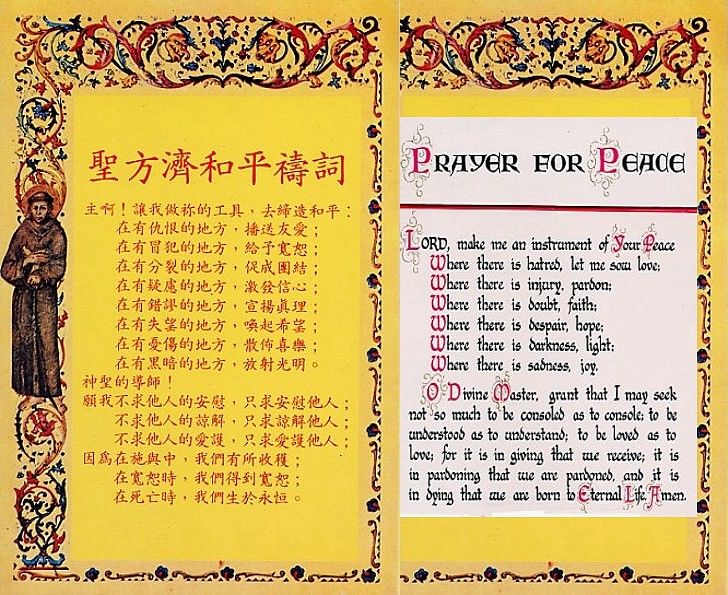 聖方濟和平禱詞
主啊！讓我做祢的工具，去締造和平：
在有仇恨的地方，播送友愛；
在有冒犯的地方，給予寬恕；
在有分裂的地方，促成團結；
在有疑慮的地方，激發信心；
在有錯謬的地方，宣揚真理；
在有失望的地方，喚起希望；
在有憂傷的地方，散佈喜樂；
在有黑暗的地方，放射光明。
神聖的導師！
願我不求他人的安慰，只求安慰他人；
不求他人的諒解，只求諒解他人；
不求他人的愛護，只求愛護他人；
因為在施與中，我們有所收穫；
在寬恕時，我們得到寬恕；
在死亡時，我們生於永恆。
PRAYER FOR PEACE
LORD, make me an instrument of Your Peace
Where there is hatred, let me sow love;
Where there is injury, pardon;
Where there is doubt, faith;
Where there is despair, hope;
Where there is darkness, light;
Where there is sadness, joy.
O Divine Master, grant that I may seek
not so much to be consoled as to console; to be
understood as to understand; to be loved as to
love; for it is in giving that we receive; it is
in pardoning that we are pardoned, and it is
in dying that we are born to Eternal Life. Amen.